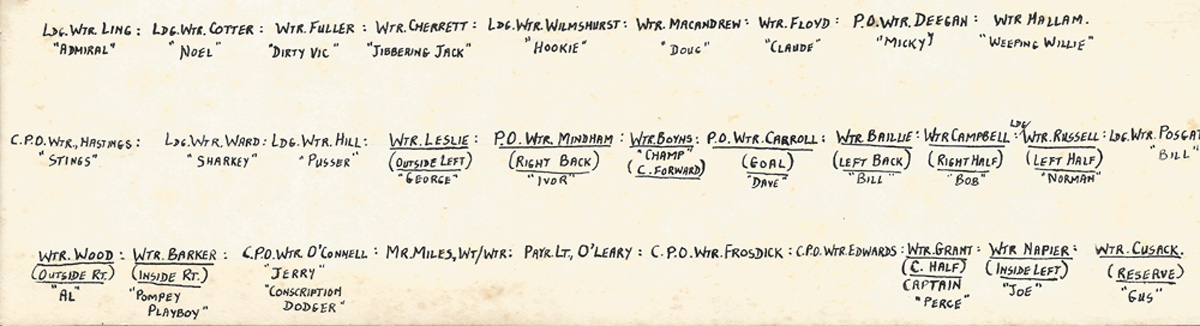 LDG. WTR. LING : LDG. WTR. COTTER : WTR. FULLER : WTR. CHERRETT : LDG. WTR. WILMSHURST : WTR. MACANDREW : WTR. FLOYD : P.O. WTR. DEEGAN : WTR HALLAM.
"ADMIRAL" "NOEL" "DIRTY VIC" "JIBBERING JACK" "HOOKIE" "DOUG" "CLAUDE" "MICKY" "WEEPING WILLIE"
C.P.O. WTR., HASTINGS : LDG. WTR. WARD : LDG. WTR. HILL : WTR. LESLIE : P.O. WTR. MINDHAM : WTR. BOYNS : P.O. WTR. CARROLL : WTR. BAILLIE : WTR CAMPBELL : LDG WTR. RUSSELL : LDG. WTR. POSGAT
"STINGS" "SHARKEY" "PUSSER" (OUTSIDE LEFT) (RIGHT BACK) "CHAMP" (GOAL) (LEFT BACK) (RIGHT HALF) (LEFT HALF) "BILL"
"GEORGE" "IVOR" (C. FORWARD) "DAVE" "BILL" "BOB" "NORMAN"
WTR. WOOD : WTR. BARKER : C.P.O. WTR O'CONNELL : MR. MILES, WT/WTR : PAYR. LT., O'LEARY : C.P.O. WTR. FROSDICK : C.P.O. WTR. EDWARDS : WTR. GRANT : WTR NAPIER : WTR. CUSACK.
(OUTSIDE RT.) (INSIDE RT.) "JERRY" (C. HALF) (INSIDE LEFT) (RESERVE)
"AL" "POMPEY "CONSCRIPTION CAPTAIN "JOE" "GUS"
PLAYBOY" DODGER" "PERCE"